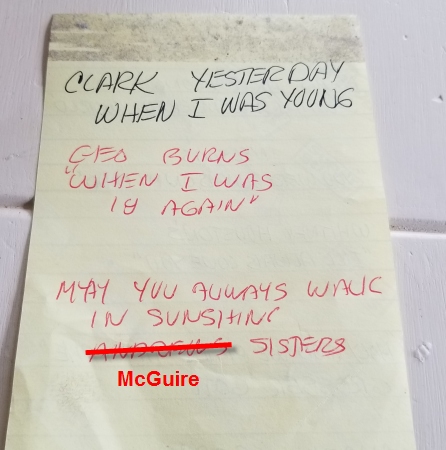 CLARK YESTERDAY
WHEN I WAS YOUNG
GEO BURNS
"WHEN I WAS
18 AGAIN"
MAY YOU ALWAYS WALK
IN SUNSHINE
ANDREWS SISTERS
McGuire